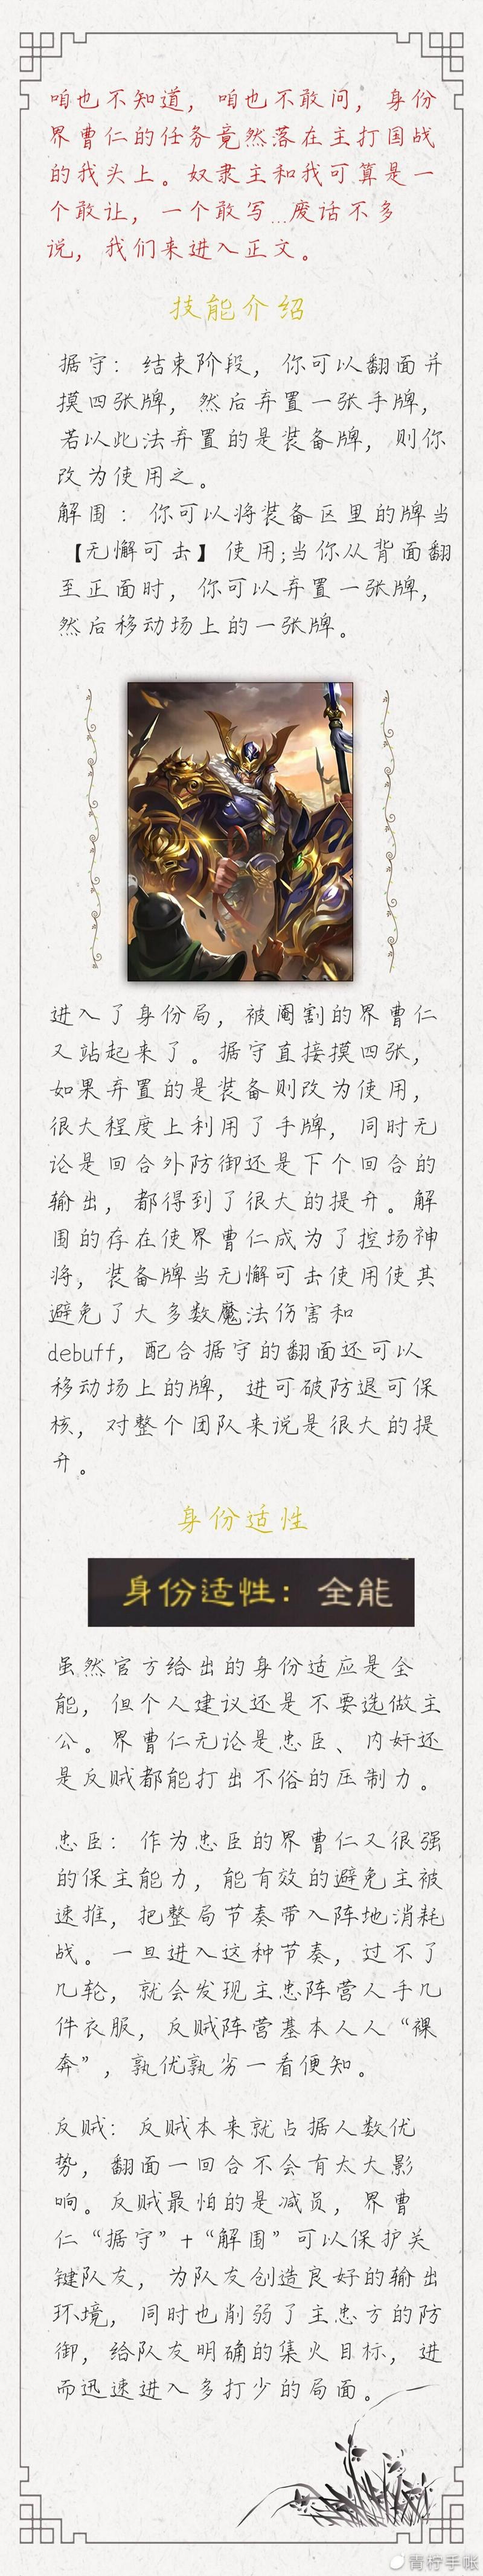 咱也不知道，咱也不敢问，身份
界曹仁的任务竟然落在主打国战
的我头上。奴隶主和我可算是一
个敢让，一个敢写…废话不多
说，我们来进入正文。
技能介绍
据守：结束阶段，你可以翻面并
摸四张牌，然后弃置一张手牌，
若以此法弃置的是装备牌，则你
改为使用之。
解围：你可以将装备区里的牌当
【无懈可击】使用;当你从背面翻
至正面时，你可以弃置一张牌，
然后移动场上的一张牌。
进入了身份局，被阉割的界曹仁
又站起来了。据守直接摸四张，
如果弃置的是装备则改为使用，
很大程度上利用了手牌，同时无
论是回合外防御还是下个回合的
输出，都得到了很大的提升。解
围的存在使界曹仁成为了控场神
将，装备牌当无懈可击使用使其
避免了大多数魔法伤害和
debuff，配合据守的翻面还可以
移动场上的牌，进可破防退可保
核，对整个团队来说是很大的提
升。
身份适性
身份适性：全能
虽然官方给出的身份适应是全
能，但个人建议还是不要选做主
公。界曹仁无论是忠臣、内奸还
是反贼都能打出不俗的压制力。
忠臣：作为忠臣的界曹仁又很强
的保主能力，能有效的避免主被
速推，把整局节奏带入阵地消耗
战。一旦进入这种节奏，过不了
几轮，就会发现主忠阵营人手几
件衣服，反贼阵营基本人人“裸
奔”，孰优孰劣一看便知。
反贼：反贼本来就占据人数优
势，翻面一回合不会有太大影
响。反贼最怕的是减员，界曹
仁“据守”+“解围”可以保护关
键队友，为队友创造良好的输出
环境，同时也削弱了主忠方的防
御，给队友明确的集火目标，进
而迅速进入多打少的局面。
青柠手帐